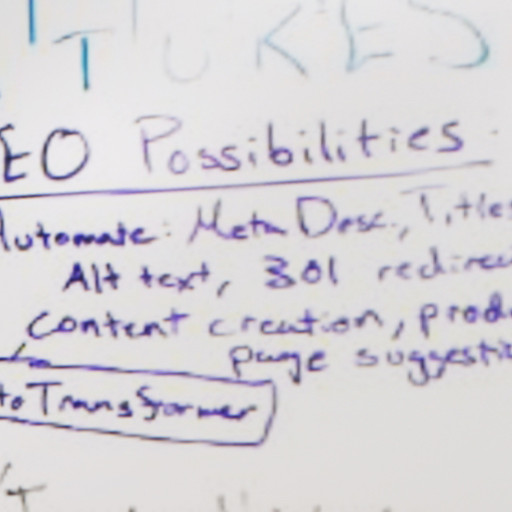 TUKES
EO Possibilities
Automate: Meta Desc., Titles
Alt text, 301 redirec
content creation, produ
page suggestio
to Transformer